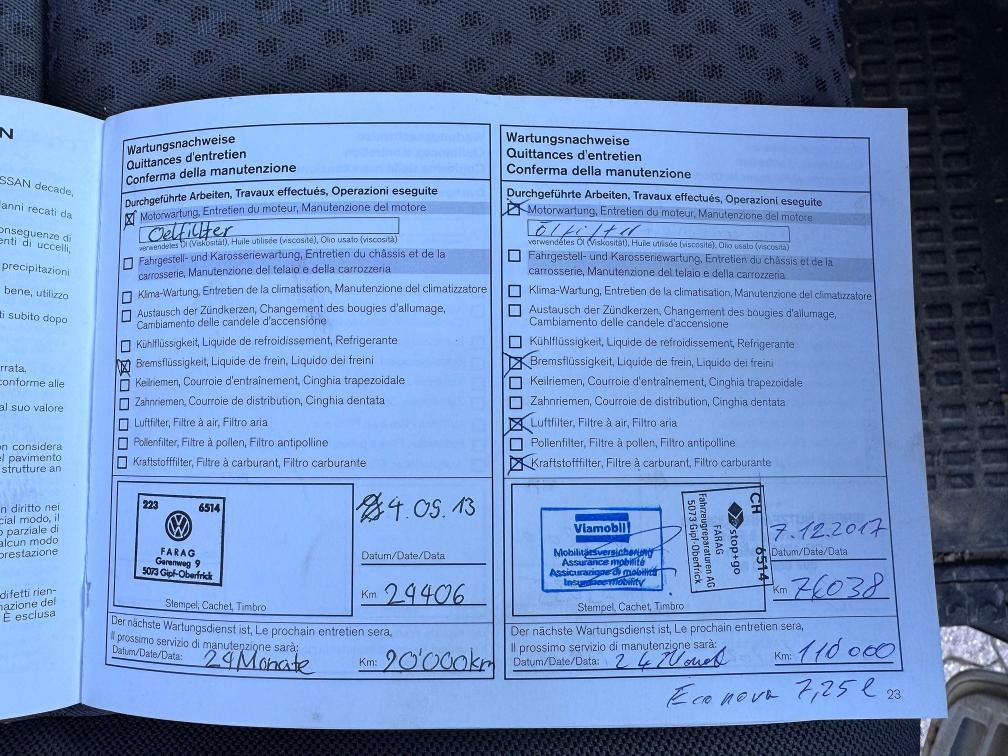 N
SSAN decade,
danni recati da
conseguenze di
enti di uccelli,
precipitazioni
bene, utilizzo
ti subito dopo
rrata.
conforme alle
al suo valore
on considera
el pavimento
strutture an
n diritto nei
cial modo, il
o parziale di
alcun modo
prestazione
difetti rien-
mazione del
È esclusa
Wartungsnachweise
Quittances d'entretien
Conferma della manutenzione
Durchgeführte Arbeiten, Travaux effectués, Operazioni eseguite
Motorwartung, Entretien du moteur, Manutenzione del motore
Oelfilter
verwendetes Öl (Viskosität), Huile utilisée (viscosité), Olio usato (viscosità)
Fahrgestell- und Karosseriewartung, Entretien du châssis et de la
carrosserie, Manutenzione del telaio e della carrozzeria
Klima-Wartung, Entretien de la climatisation, Manutenzione del climatizzatore
Austausch der Zündkerzen, Changement des bougies d'allumage,
Cambiamento delle candele d'accensione
Kühlflüssigkeit, Liquide de refroidissement, Refrigerante
Bremsflüssigkeit, Liquide de frein, Liquido dei freini
Keilriemen, Courroie d'entraînement, Cinghia trapezoidale
Zahnriemen, Courroie de distribution, Cinghia dentata
Luftfilter, Filtre à air, Filtro aria
Pollenfilter, Filtre à pollen, Filtro antipolline
Kraftstofffilter, Filtre à carburant, Filtro carburante
223 6514
FARAG
Gerenweg 9
5073 Gipf-Oberfrick
Stempel, Cachet, Timbro
4.05.13
Datum/Date/Data
Km 29406
Der nächste Wartungsdienst ist, Le prochain entretien sera,
Il prossimo servizio di manutenzione sarà:
Datum/Date/Data: 24 Monate Km: 90'000km
Wartungsnachweise
Quittances d'entretien
Conferma della manutenzione
Durchgeführte Arbeiten, Travaux effectués, Operazioni eseguite
Motorwartung, Entretien du moteur, Manutenzione del motore
Ölfilter
verwendetes Öl (Viskosität), Huile utilisée (viscosité), Olio usato (viscosità)
Fahrgestell- und Karosseriewartung, Entretien du châssis et de la
carrosserie, Manutenzione del telaio e della carrozzeria
Klima-Wartung, Entretien de la climatisation, Manutenzione del climatizzatore
Austausch der Zündkerzen, Changement des bougies d'allumage,
Cambiamento delle candele d'accensione
Kühlflüssigkeit, Liquide de refroidissement, Refrigerante
Bremsflüssigkeit, Liquide de frein, Liquido dei freini
Keilriemen, Courroie d'entraînement, Cinghia trapezoidale
Zahnriemen, Courroie de distribution, Cinghia dentata
Luftfilter, Filtre à air, Filtro aria
Pollenfilter, Filtre à pollen, Filtro antipolline
Kraftstofffilter, Filtre à carburant, Filtro carburante
Viamobil
Mobilitätsversicherung
Assurance mobilité
Assicurazione di mobilità
Insurance mobility
CH 6514
stop+go
FARAG
Fahrzeugreparaturen AG
5073 Gipf-Oberfrick
Stempel, Cachet, Timbro
7.12.2017
Datum/Date/Data
Km 76038
Der nächste Wartungsdienst ist, Le prochain entretien sera,
Il prossimo servizio di manutenzione sarà:
Datum/Date/Data: 24 Km: 110'000
Econova 7,25 l
23